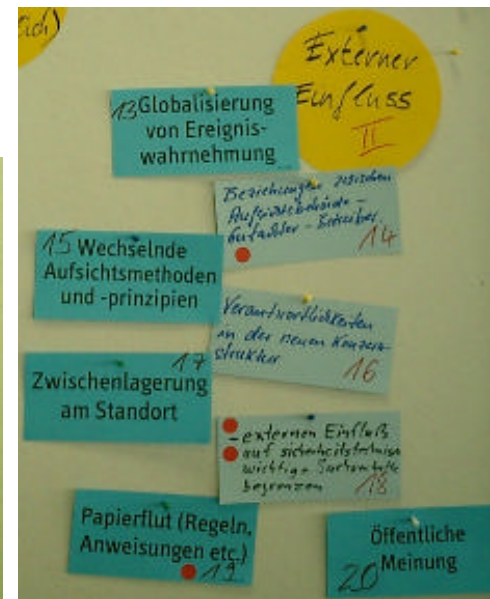 ich)
Externer
Einfluss
II
13 Globalisierung
von Ereignis-
wahrnehmung
Beziehungen zwischen
Aufsichtsbehörde -
Gutachter - Betreiber
14
15 Wechselnde
Aufsichtsmethoden
und -prinzipien
Verantwortlichkeiten
in der neuen Konzern-
struktur
16
17
Zwischenlagerung
am Standort
- externen Einfluß
auf sicherheitstechnisch
wichtige
begrenzen
18
Papierflut (Regeln,
Anweisungen etc.)
19
Öffentliche
Meinung
20